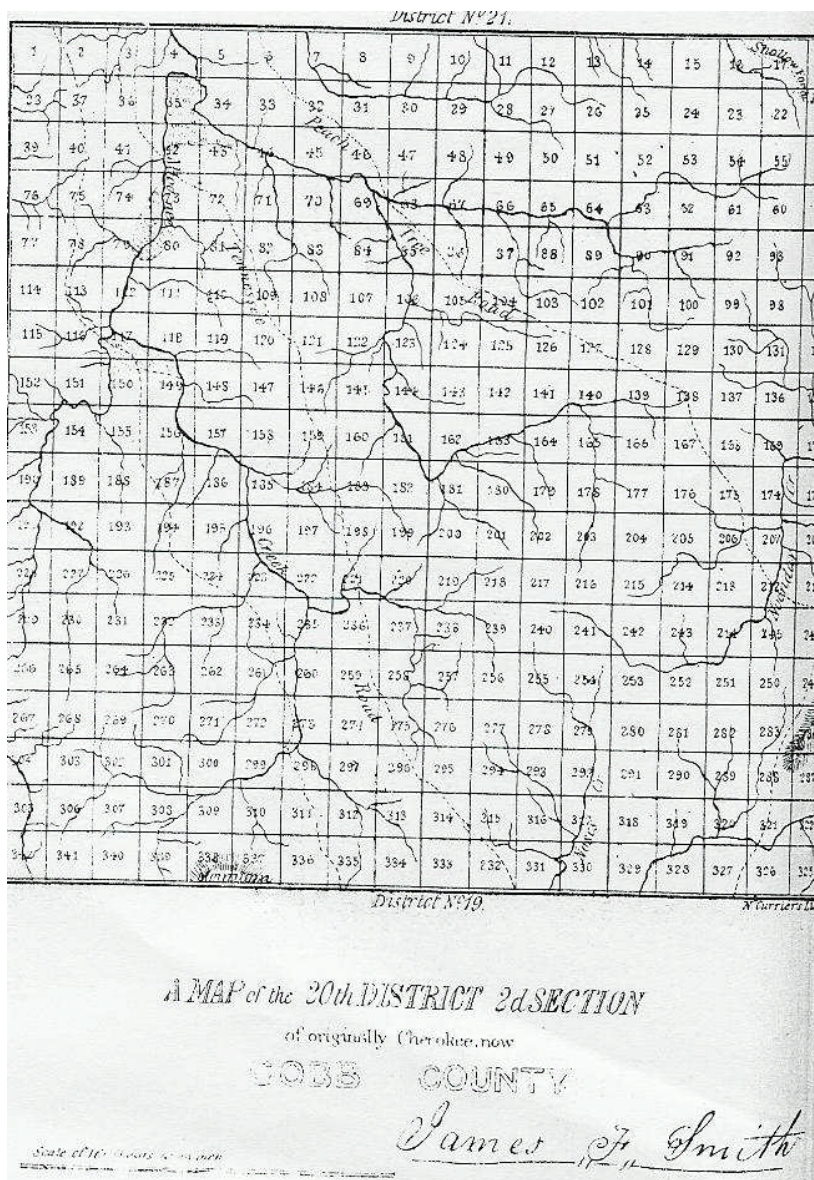 District Nº 21.
1 2 3 4 5 6 7 8 9 10 11 12 13 14 15 16 17
Shallow Ford
37 36 35 34 33 32 31 30 29 28 27 26 25 24 23 22
Peach
39 40 41 42 43 44 45 46 47 48 49 50 51 52 53 54 55
76 75 74 73 72 71 70 69 68 67 66 65 64 63 62 61 60
Tree
77 78 79 80 81 82 83 84 85 86 87 88 89 90 91 92 93
114 113 112 111 110 109 108 107 106 105 104 103 102 101 100 99 98
Road
115 116 117 118 119 120 121 122 123 124 125 126 127 128 129 130 131
152 151 150 149 148 147 146 145 144 143 142 141 140 139 138 137 136
153 154 155 156 157 158 159 160 161 162 163 164 165 166 167 168 169
190 189 188 187 186 185 184 183 182 181 180 179 178 177 176 175 174
192 193 194 195 196 197 198 199 200 201 202 203 204 205 206 207
Creek
227 226 225 224 223 222 221 220 219 218 217 216 215 214 213 212
230 231 232 233 234 235 236 237 238 239 240 241 242 243 244 245
266 265 264 263 262 261 260 259 258 257 256 255 254 253 252 251 250
Road
267 268 269 270 271 272 273 274 275 276 277 278 279 280 281 282 283
303 302 301 300 299 298 297 296 295 294 293 292 291 290 289 288 287
305 306 307 308 309 310 311 312 313 314 315 316 317 318 319 320 321
341 340 339 338 337 336 335 334 333 332 331 330 329 328 327 326 325
Mountain
District Nº 19.
N Curriers
A MAP of the 20th DISTRICT 2d SECTION
of originally Cherokee, now
COBB COUNTY
James F. Smith
Scale of